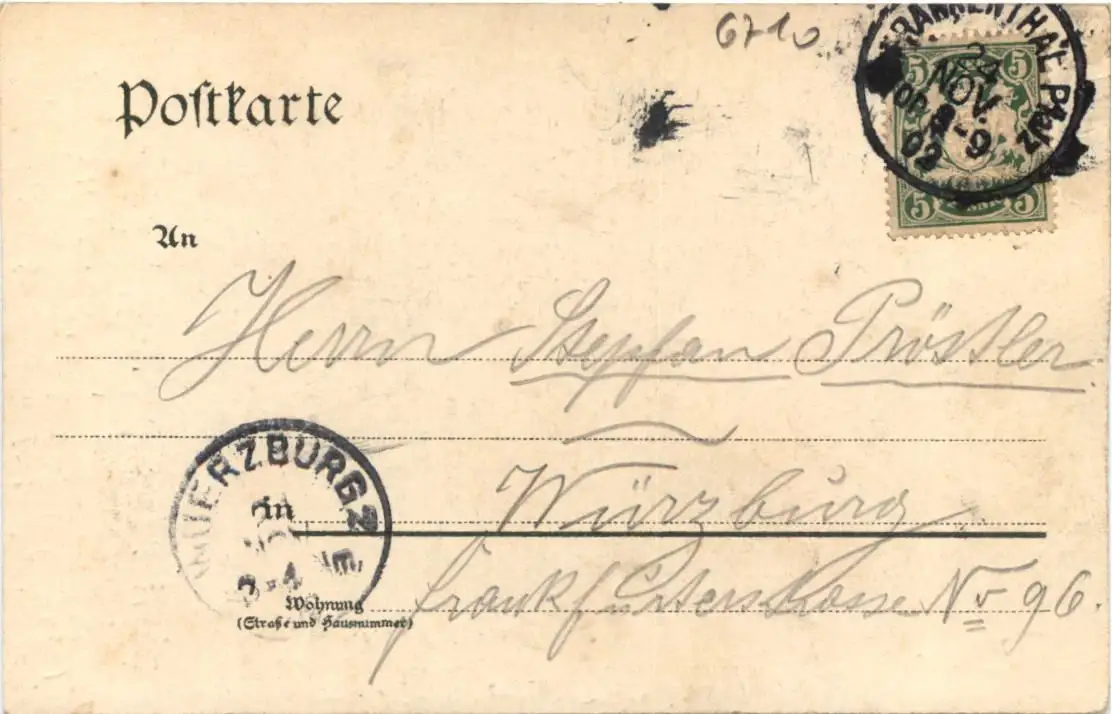 6710
FRANKENTHAL Pfalz
24
NOV.
8-9
02
5 5
5 5
Postkarte
An
Herrn Stephan Pröstler
Würzburg
WUERZBURG 2
in
3-4
Frankfurterstrasse No 96.
Wohnung
(Straße und Hausnummer)